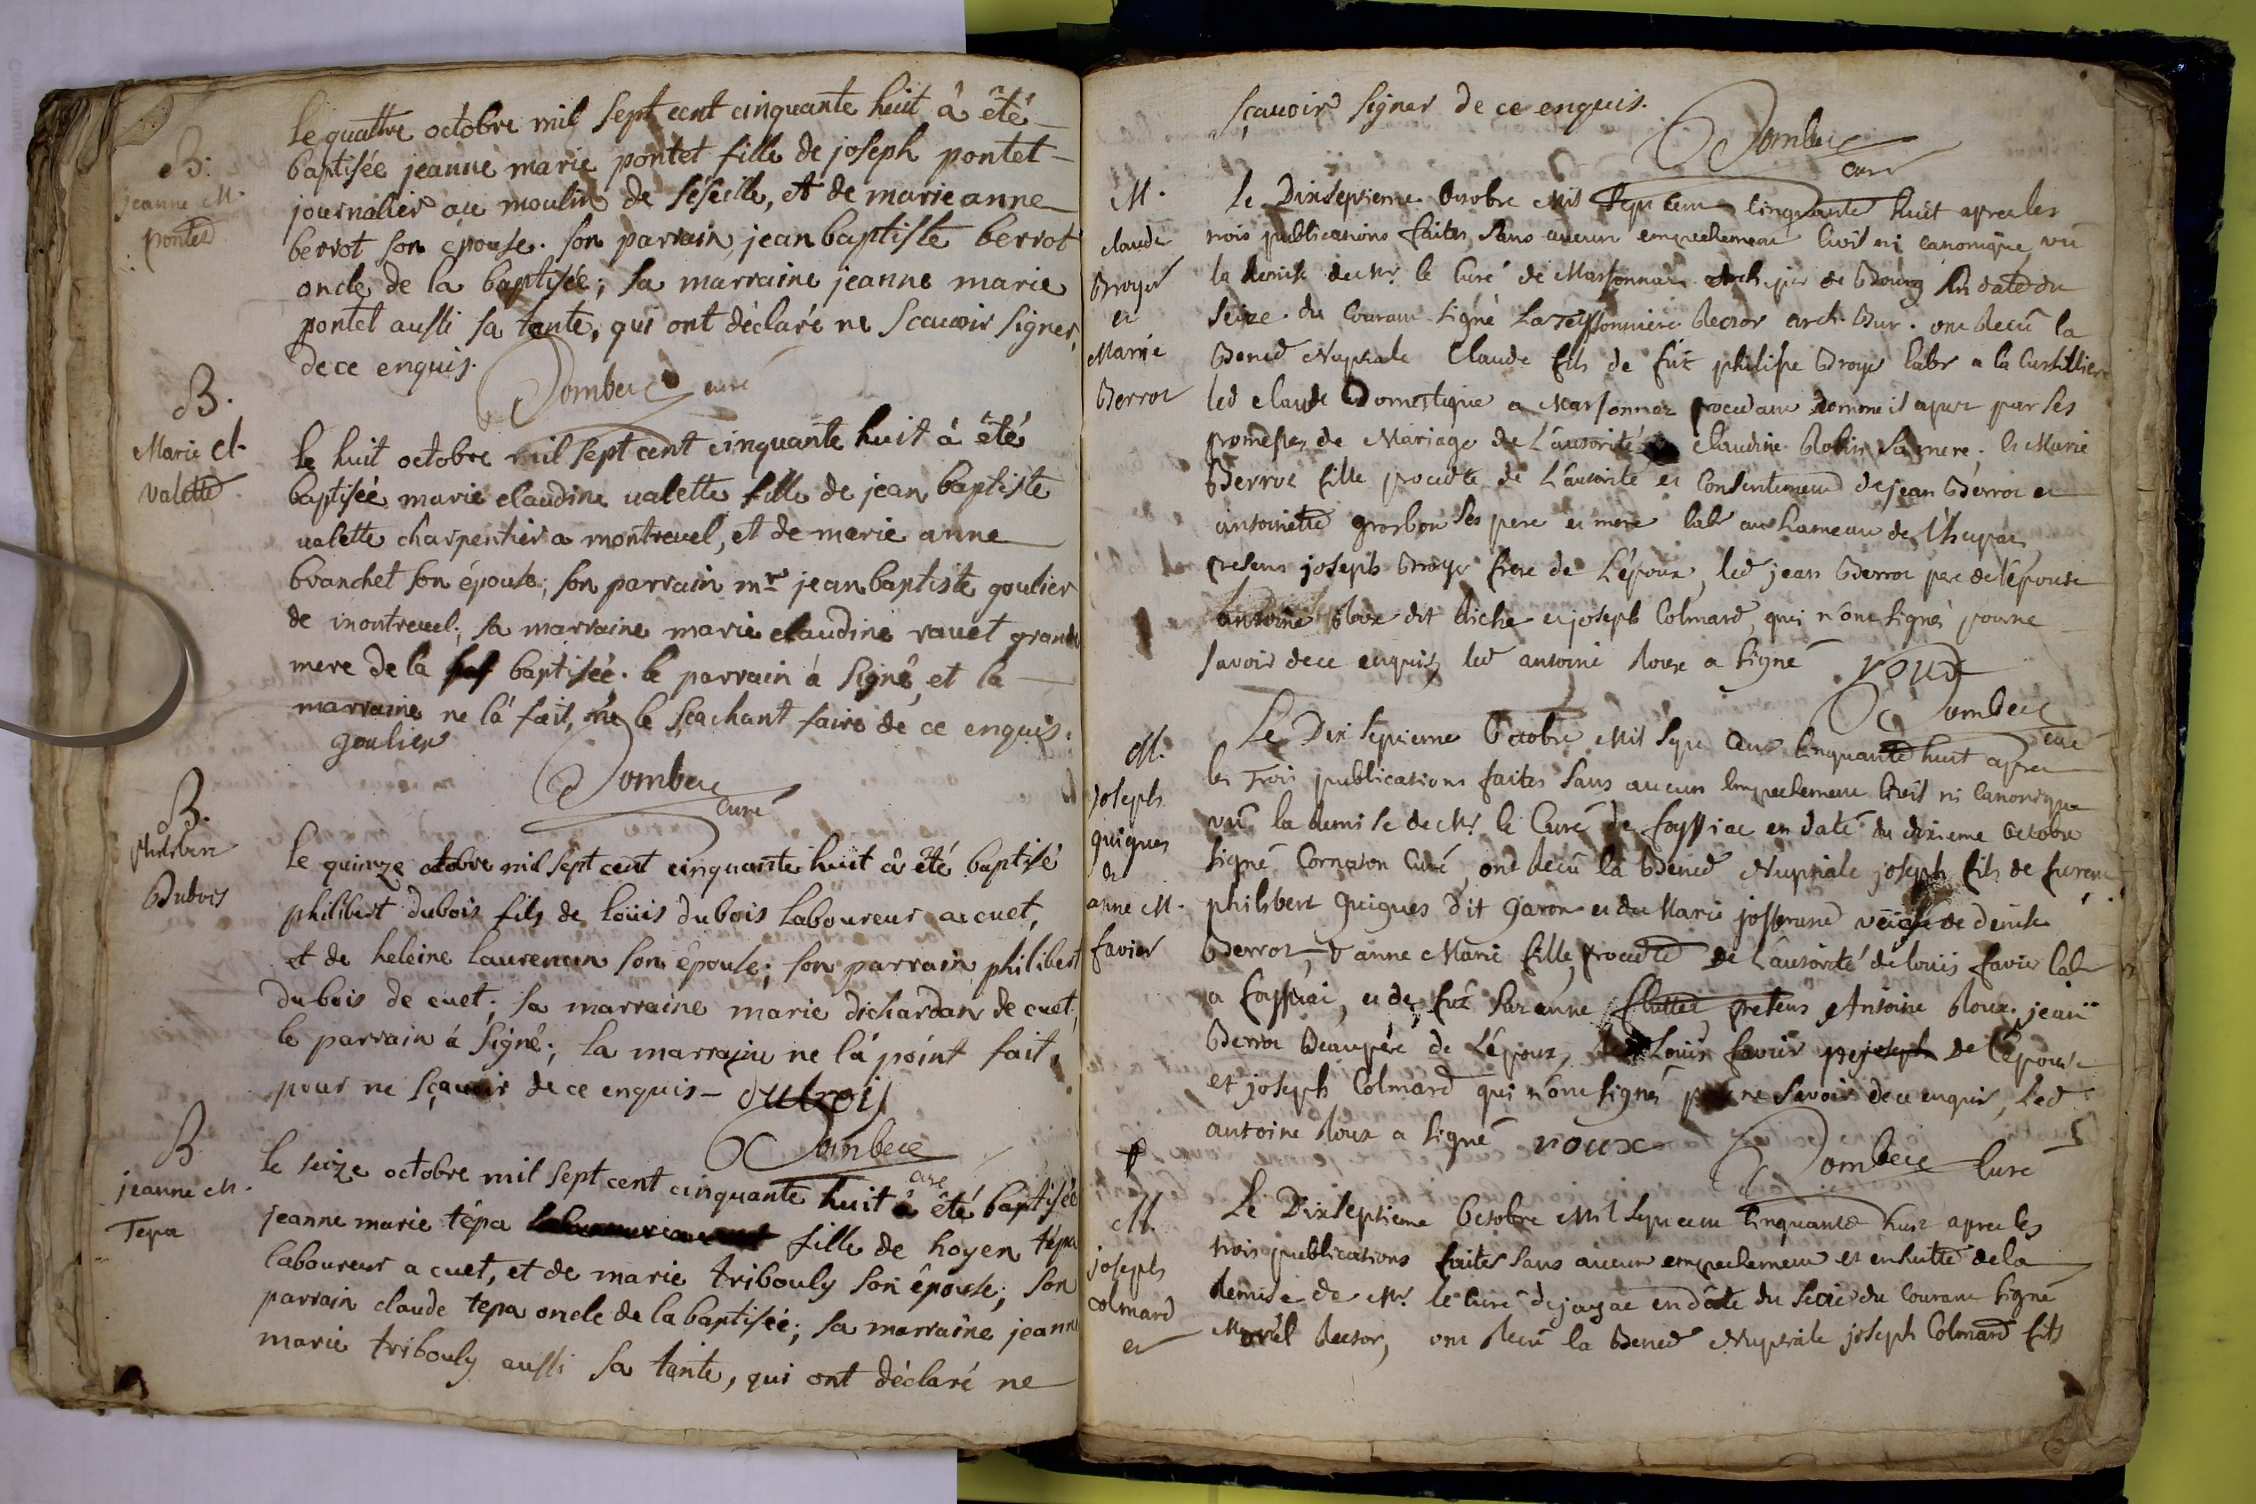 B.
jeanne M.
pontet
le quattre octobre mil sept cent cinquante huit â êté
baptisée jeanne marie pontet fille de joseph pontet
journalier au moulin de, et de marie anne
berrot son épouse. son parrain, jean baptiste berrot
oncle de la baptisée; sa marraine jeanne marie
pontet aussi sa tante, qui ont déclaré ne scavoir signer,
de ce enquis.
Dombey curé
B.
Marie cl.
valette
le huit octobre mil sept cent cinquante huit â été
baptisée marie claudine valette fille de jean baptiste
valette charpentier a montrevel, et de marie anne
branchet son épouse; son parrain mre jean baptiste goulier
de montrevel; sa marraine marie claudine ravet grande
mere de la baptisée. le parrain â signé, et la
marraine ne lâ fait, ne le scachant faire de ce enquis.
goulier
Dombey
curé
B.
philibert
Dubois
le quinze octobre mil sept cent cinquante huit â êté baptisé
philibert dubois fils de loüis dubois laboureur a cuet,
et de heleine laurencin son épouse; son parrain philibert
dubois de cuet; sa marraine marie dichardan de cuet;
le parrain â signé; la marraine ne lâ point fait,
pour ne sçavoir de ce enquis
Dombey
curé
B
jeanne M.
Tepa
le seize octobre mil sept cent cinquante huit â êté baptisée
jeanne marie tépa fille de hoyen tépa
laboureur a cuet, et de marie tribouly son épouse; son
parrain claude tepa oncle de la baptisée; sa marraine jeanne
marie tribouly aussi sa tante, qui ont déclaré ne
sçavoir signer de ce enquis.
Dombey
curé
M.
claude
Broyer
et
Marie
Berrot
le Dixseptieme octobre mil sept cent cinquante huit apres les
trois publications faites sans aucun empechement civil ni canonique, vu
la demise de Mr. le Curé de Marsonnas de Bourg en date du
seize du courant signé La Teyssonniere Rector ont reçu la
Bened Nuptiale Claude fils de fut philipe Broyer labr a la
led claude Domestique a Marsonnas procedant comme il apert par ses
promesses de Mariage de l'autorité claudine Robin sa mere. et Marie
Berrot fille procedte de l'autorité et consentement de jean Berrot et
antoinette grosbon ses pere et mere labr au hameau de
presens joseph Broyer frere de l'époux, led jean Berrot pere de l'épouse
antoine Roux dit diche et joseph Colmard, qui n'ont signés pour ne
savoir de ce enquis led antoine Roux a signé roux
Dombey
curé
M.
joseph
guigues
et
anne M.
favier
Le Dix septieme Octobre Mil sept cent cinquante huit apres
les trois publications faites sans aucun empechement civil ni canonique
vû la demise de Mr. le Curé de foyssiac en date du dixieme Octobre
signé Cornaton Curé, ont reçu la Bened Nuptiale joseph fils de furent
philibert Guigues dit Garon et de Marie josserand
Berrot, & anne Marie fille procedte de l'autorité de louis favier labr
a foyssiac, et de fut Suzanne presens Antoine Roux, jean
Berrot Beaupere de l'époux, Louis favier pere de l'épouse
et joseph Colmard qui n'ont signés pr ne savoir de ce enquis, led
antoine Roux a signé roux
Dombey Curé
M.
joseph
colmard
et
Le Dixseptieme Octobre Mil sept cent cinquante huit apres les
trois publications faites sans aucun empechement et ensuitte de la
demise de Mr. le curé de jayac en date du seize du courant signé
Morel Rector, ont reçu la Bened Nuptiale joseph Colmard fils